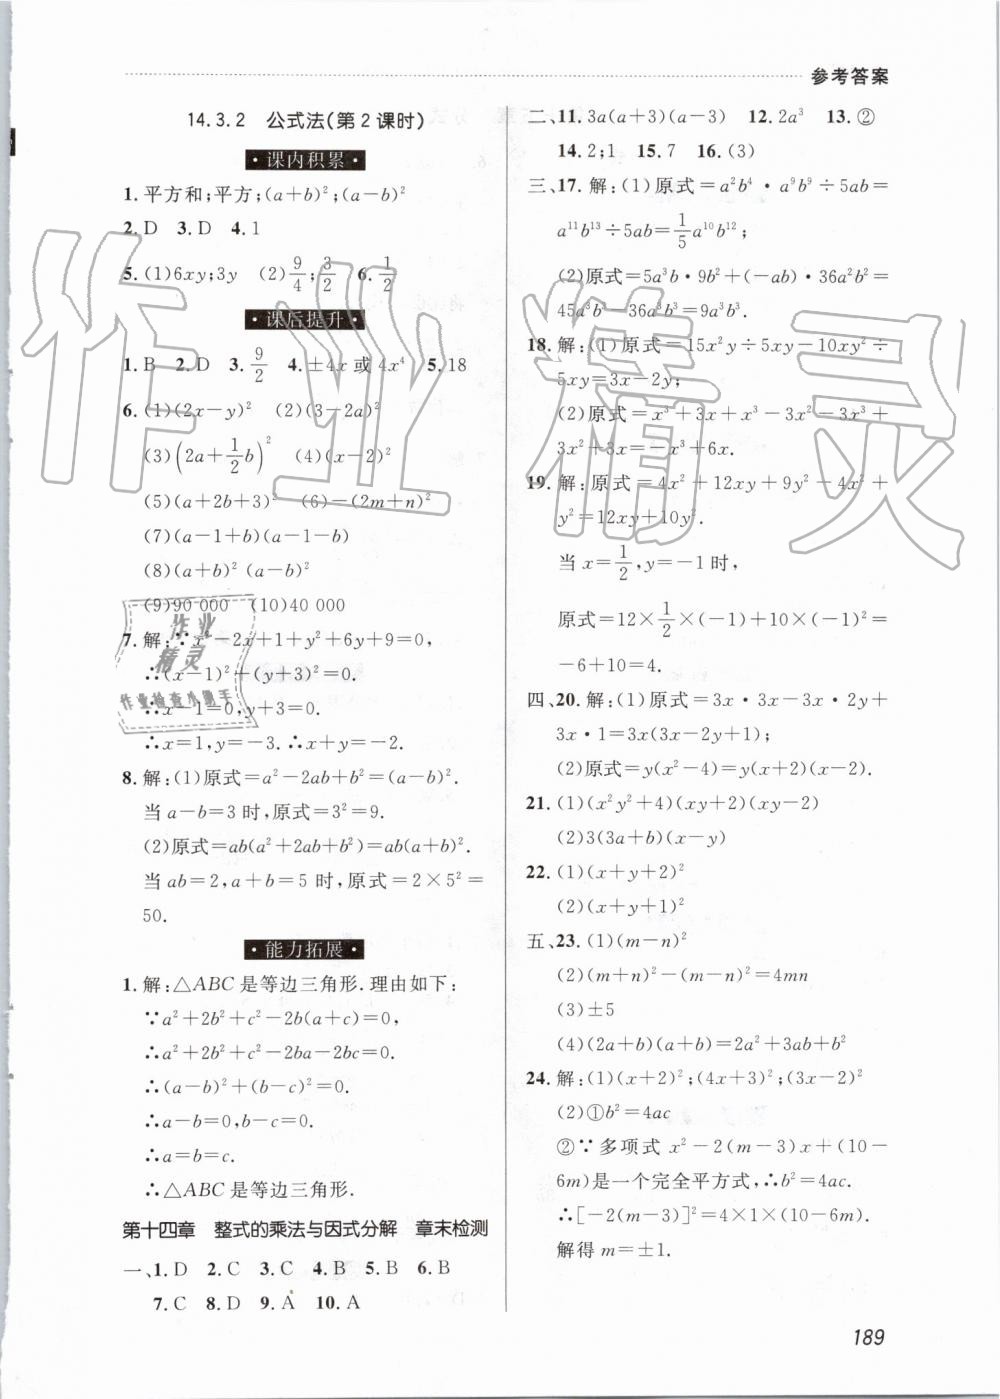 参考答案
14.3.2 公式法(第2课时)
·课内积累·
1.平方和;平方;(a+b)²;(a−b)²
2.D 3.D 4.1
5.(1)6xy;3y (2)9/4;3/2 6.1/2
·课后提升·
1.B 2.D 3.9/2 4.±4x或4x⁴ 5.18
6.(1)(2x−y)² (2)(3−2a)²
(3)(2a+1/2b)² (4)(x−2)²
(5)(a+2b+3)² (6)−(2m+n)²
(7)(a−1+b)(a−1−b)
(8)(a+b)²(a−b)²
(9)90 000 (10)40 000
7.解:∵x²−2x+1+y²+6y+9=0,
∴(x−1)²+(y+3)²=0.
∴x−1=0,y+3=0.
∴x=1,y=−3.∴x+y=−2.
8.解:(1)原式=a²−2ab+b²=(a−b)².
当a−b=3时,原式=3²=9.
(2)原式=ab(a²+2ab+b²)=ab(a+b)².
当ab=2,a+b=5时,原式=2×5²=
50.
·能力拓展·
1.解:△ABC是等边三角形.理由如下:
∵a²+2b²+c²−2b(a+c)=0,
∴a²+2b²+c²−2ba−2bc=0.
∴(a−b)²+(b−c)²=0.
∴a−b=0,b−c=0.
∴a=b=c.
∴△ABC是等边三角形.
第十四章 整式的乘法与因式分解 章末检测
一、1.D 2.C 3.C 4.B 5.B 6.B
7.C 8.D 9.A 10.A
二、11.3a(a+3)(a−3) 12.2a³ 13.②
14.2;1 15.7 16.(3)
三、17.解:(1)原式=a²b⁴·a⁹b⁹÷5ab=
a¹¹b¹³÷5ab=1/5a¹⁰b¹²;
(2)原式=5a³b·9b²+(−ab)·36a²b²=
45a³b³−36a³b³=9a³b³.
18.解:(1)原式=15x²y÷5xy−10xy²÷
5xy=3x−2y;
(2)原式=x³+3x+x²−3x²−3x³+
3x²+3x−x²=−x³+6x.
19.解:原式=4x²+12xy+9y²−4x²+
y²=12xy+10y².
当x=1/2,y=−1时,
原式=12×1/2×(−1)+10×(−1)²=
−6+10=4.
四、20.解:(1)原式=3x·3x−3x·2y+
3x·1=3x(3x−2y+1);
(2)原式=y(x²−4)=y(x+2)(x−2).
21.(1)(x²y²+4)(xy+2)(xy−2)
(2)3(3a+b)(x−y)
22.(1)(x+y+2)²
(2)(x+y+1)²
五、23.(1)(m−n)²
(2)(m+n)²−(m−n)²=4mn
(3)±5
(4)(2a+b)(a+b)=2a²+3ab+b²
24.解:(1)(x+2)²;(4x+3)²;(3x−2)²
(2)①b²=4ac
②∵多项式x²−2(m−3)x+(10−
6m)是一个完全平方式,∴b²=4ac.
∴[−2(m−3)]²=4×1×(10−6m).
解得m=±1.
189
作业精灵
作业
精灵
作业检查小帮手